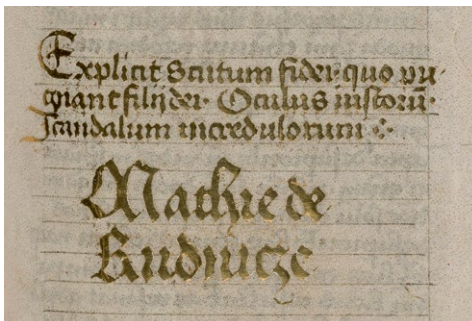 Explicit Scutum fidei quo pu-
gnant filij dei· Oculus iustorū·
Scandalum incredulorum
Mathie de
Rudnicze